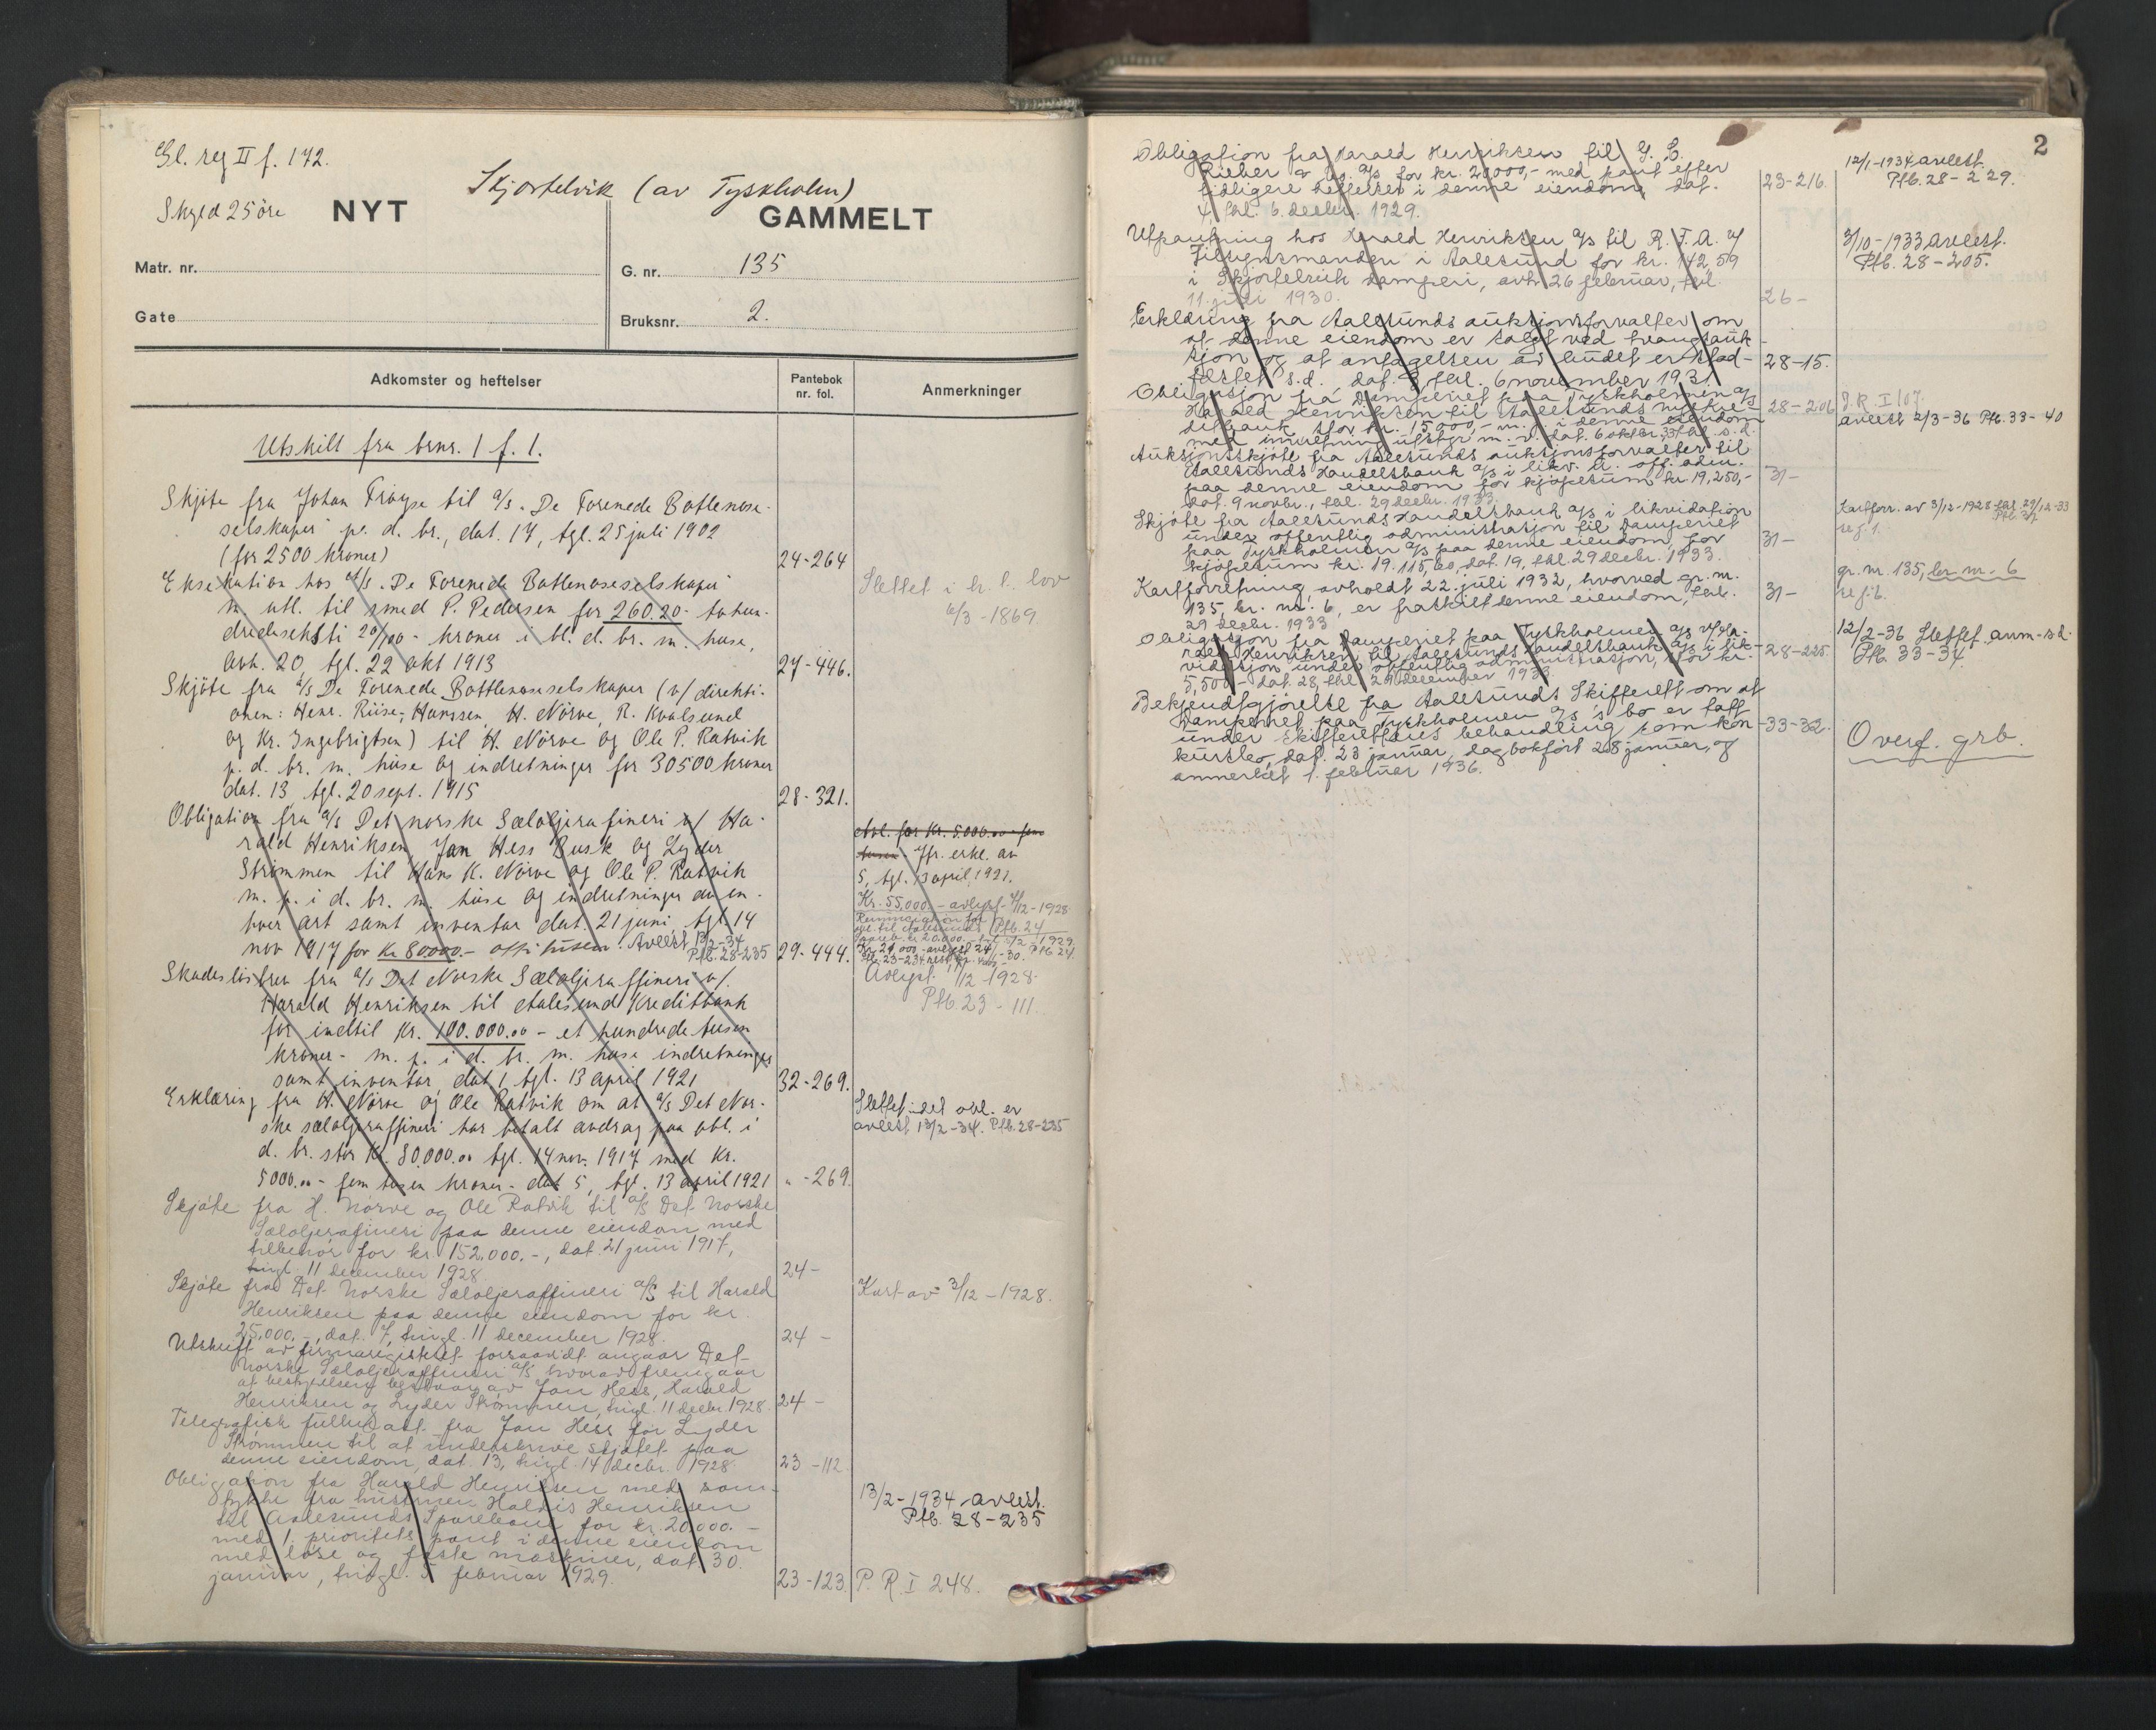 Gl. reg II f. 172.
Skjortelvik (av Tyskholm)
Skyld 25 öre
NYT
GAMMELT
Matr. nr.
G. nr. 135
Gate
Bruksnr. 2.
Adkomster og heftelser
Pantebok
nr. fol.
Anmerkninger
Utskilt fra brnr. 1 f. 1.
Skjöte fra Johan til a/s. De Forenede Botlenose-
selskaper p. d. br., dat. 17, tgl. 25 juli 1902
(for 2500 kroner)
24-264
Eksekution hos a/s. De Forenede Bottlenoseselskaper
m. utl. til smed P. Pedersen for 260.20- tohun-
dredeseksti 20/100 - kroner i bl. d. br. m. huse,
avh. 20, tgl. 22 okt 1913
27-446.
Slettet i h. t. lov
6/3 - 1869.
Skjöte fra a/s De Forenede Bottlenoseselskaper (v/ direkti-
onen: Henr. Riise, Hanssen, H. Nörve, R. Kvalsund
og Kr. Ingebrigtsen) til H. Nörve og Ole P. Ratvik
p. d. br. m. huse og indretninger for 30500 kroner
dat. 13 tgl. 20 sept. 1915
28-321.
Obligation fra a/s Det norske Sæloljerafineri v/ Ha-
rald Henriksen, Jan Hess Busk og Lyder
Strömmen til Hans K. Nörve og Ole P. Ratvik
m. p. i d. br. m. huse og indretninger av en-
hver art samt inventar dat. 21 juni tgl 14
nov 1917 for Kr 80000.- otti tusen. Avlest 13/2-34
Ptb. 28-235
29-444.
Avl. for Kr. 5.000.00 - fem
tusen - Jfr. erkl. av
5, tgl. 13 april 1921.
Kr. 55,000.- avlyst 11/12-1928
Ptb. 24
Skadeslösbrev fra a/s Det Norske Sæloljeraffineri v/
Harald Henriksen til Aalesund Kreditbank
for indtil Kr. 100.000.00 - et hundrede tusen
kroner - m. p. i d. br. m. huse indretninger
samt inventar, dat 1, tgl. 13 april 1921
32-269.
Avlyst. 11/12-1928
Ptb. 23 - 111.
Erklæring fra H. Nörve og Ole Ratvik om at a/s Det Nor-
ske sæloljeraffineri har betalt avdrag paa obl. i
d. br. stor Kr. 80.000.00 tgl. 14 nov. 1917 med Kr.
5000.00 - fem tusen kroner - dat 5, tgl. 13 april 1921
" -269.
Slettet idet obl. er
avlest 13/2-34. Ptb. 28-235
Skjöte fra H. Nörve og Ole Ratvik til a/s Det Norske
Sæloljerafineri paa denne eiendom med
tilbehör for kr. 152.000.-, dat. 21 juni 1917,
tingl. 11 december 1928
24-
Skjöte fra Det Norske Sæloljeraffineri a/s til Harald
Henriksen paa denne eiendom for kr.
25,000.-, dat. 7, tingl. 11 december 1928.
24 -
Kart av 3/12 - 1928.
Utskrift av firmaregistret forsaavidt angaar Det
Norske Sæloljeraffineri a/s hvorav fremgaar
at bestyrelsen bestaar av Jan Hess, Harald
Henriksen og Lyder Strömmen, tingl. 11 decbr. 1928.
24 -
Telegrafisk fuldmakt fra Jan Hess for Lyder
Strömmen til at underskrive skjötet paa
denne eiendom, dat. 13, tingl. 14 decbr. 1928.
23 -112.
Obligation fra Harald Henriksen med sam-
tykke fra hustruen Haldis Henriksen
til Aalesunds Sparebank for kr. 20.000.-
med 1 prioritets pant i denne eiendom
med löse og faste maskiner, dat 30.
januar, tingl. 5 februar 1929.
23-123.
13/2-1934 avlest.
Ptb. 28-235
P. R. I 248.
2
Obligation fra Harald Henriksen til G. C.
Rieber & Co. a/s for kr. 20000,- med pant efter
tidligere heftelser i denne eiendom, dat.
4, thl. 6. decbr. 1929.
23-216.
12/1-1934 avlest.
Ptb. 28-229.
Utpantning hos Harald Henriksen a/s til R. T. A. v/
Tilsynsmanden i Aalesund for kr. 142,59
i Skjortelvik damperi, avh. 26 februar, thl.
11. juli 1930.
26-
3/10-1933 avlest.
Ptb. 28-205.
Erklæring fra Aalesunds auksjonsforvalter om
at denne eiendom er solgt ved tvangsauk-
sjon og at antagelsen av budet er stad-
festet s.d., dat. 3, thl. 6 november 1931.
28-15.
Obligasjon fra Damperiet paa Tyskholmen a/s
Harald Henriksen til Aalesunds
for kr. 15000,- m. p. i denne eiendom
med innretning utstyr m. v. dat. 6 oktbr. 33, thl. s. d.
28-206
J. R. I 107.
avlest 2/3-36 Ptb. 33-40
Auksjonsskjöte fra Aalesunds auksjonsforvalter til
Aalesunds Handelsbank a/s i likv. u. off. adm.
paa denne eiendom for kjöpesum kr 19,250,-
dat. 9 novbr., thl. 29 decbr. 1933.
31-
Skjöte fra Aalesunds Handelsbank a/s i likvidation
under offentlig administrasjon til Damperiet
paa Tyskholmen a/s paa denne eiendom for
kjöpesum kr. 19.115,60, dat. 19, thl. 29 decbr. 1933.
31-
Kartforr. av 3/12-1928 thl 29/12-33
se f. 1.
Kartforretning, avholdt 22. juli 1932, hvorved gr. nr.
135, br. nr. 6, er fraskilt denne eiendom, thl.
29 decbr. 1933
31-
gr. nr. 135, br. nr. 6
se f. 6.
Obligasjon fra Damperiet paa Tyskholmen a/s v/ Ha-
rald Henriksen til Aalesunds Handelsbank a/s i lik-
vidasjon under offentlig administrasjon, stor kr.
5,500,- dat. 28, thl 29 december 1933.
28-225.
12/2-36 Slettet anm. s. d.
Ptb. 33-34.
Bekjendtgjörelse fra Aalesunds Skifterett om at
Damperiet paa Tyskholmen a/s's bo er tatt
under Skifterettens behandling som kon-
kursbo, dat. 23 januar, dagbokfört 28 januar, og
anmerket 1. februar 1936.
33-32.
Overf. grb.